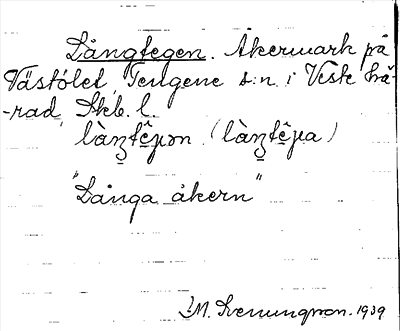 Långtegen. Åkermark på
Västölet, Tengene s:n i Viste hä-
-rad, Skb. l.
"Långa åkern"
I.M. Svenungsson. 1939